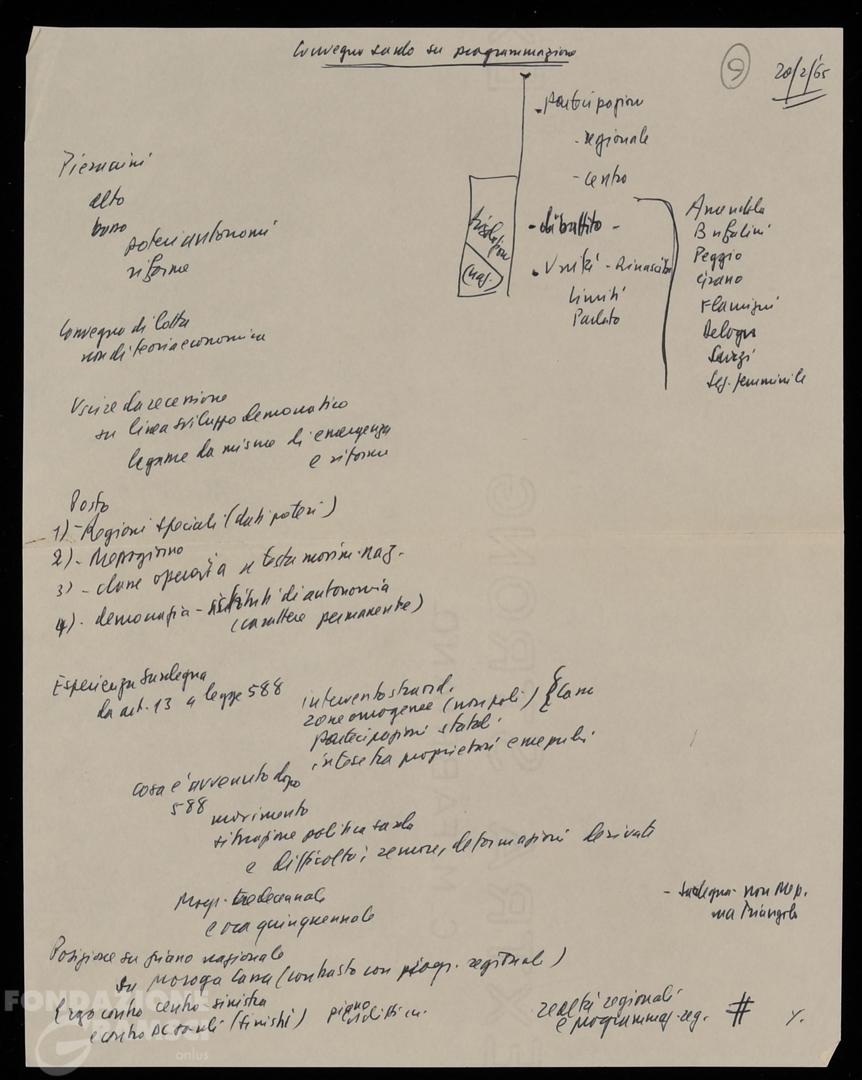 Convegno sardo su programmazione
9
20/2/65
- partecipazione
- regionale
- centro
- dibattito -
. Unità - Rinascita
Limiti
Parlato
Amendola
Bufalini
Peggio
Cirano
Flamigni
Delogu
Sez. femminile
Pieraccini
alto
basso
poteri autonomi
riforme
Convegno di lotta
non di teoria economica
Uscire da recessione
su linea sviluppo democratico
legame da misure di emergenza
e riforme
Posto
1) - Regioni speciali (dati poteri)
2) - Mezzogiorno
3) - classe operaia a testa movim. naz.
4) - democrazia - istituti di autonomia
(carattere permanente)
Esperienza Sardegna
da art. 13 a legge 588
intervento straord.
zone omogenee (non poli)
partecipazioni statali
intese tra proprietari e
cosa è avvenuto dopo
588
movimento
situazione politica sarda
e difficoltà, remore, deformazioni derivate
Progr. dodecennale
e ora quinquennale
- Sardegna non Mez.
ma Triangolo
Posizione su piano nazionale
su proroga Cassa (contrasto con progr. regionale)
Ergo contro centro sinistra
e contro DC sardi (sinistri)
piano
realtà regionali
e programmaz. reg. #
FONDAZIONE
GRAMSCI
onlus